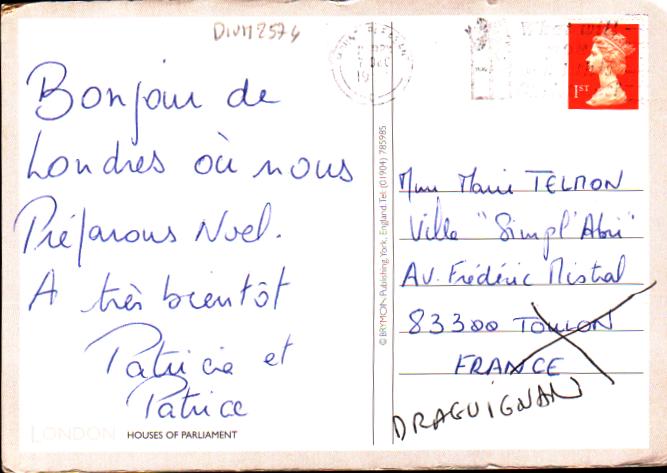 DIVM2574
Bonjour de
Londres où nous
Préparons Noel.
A très bientôt
Patricia et
Patrice
LONDON HOUSES OF PARLIAMENT
© BRYMON Publishing York, England. Tel: (01904) 785985
1ST
Mme Marie TELMON
Villa "Simpl'Abri"
Av. Frédéric Mistral
83300 TOULON
FRANCE
DRAGUIGNAN